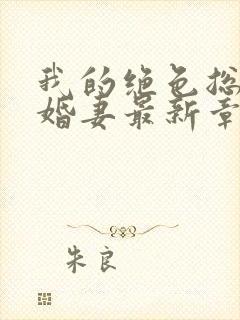 我的绝色总
婚妻最新章
朱良